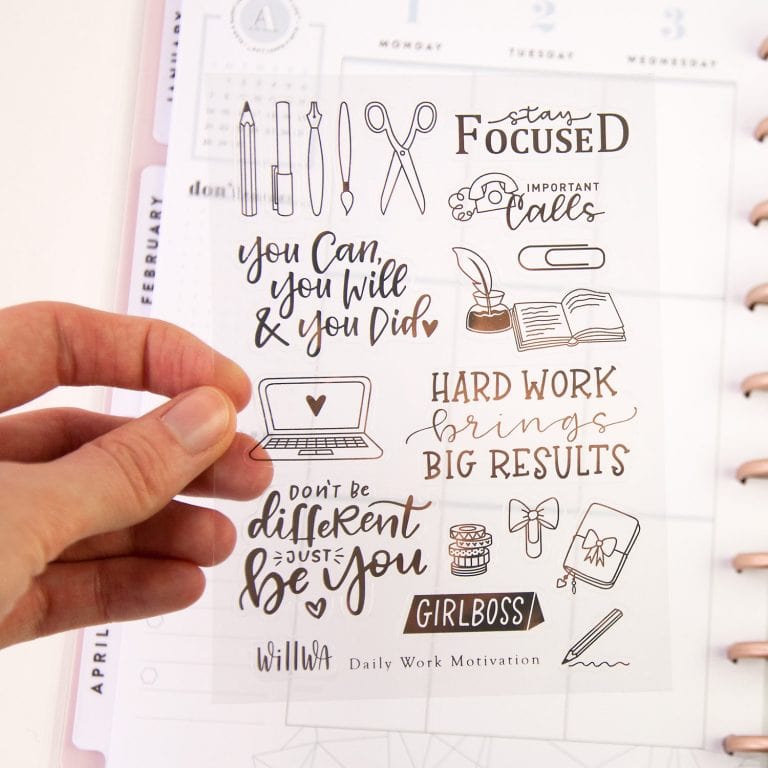 JANUARY
A
1 2 3
MONDAY TUESDAY WEDNESDAY
stay
FOCUSED
don't
IMPORTANT
Calls
FEBRUARY
you Can,
you Will
& you Did
HARD WORK
brings
BIG RESULTS
DON'T BE
different
JUST
be you
GIRLBOSS
APRIL
WiLLWA Daily Work Motivation